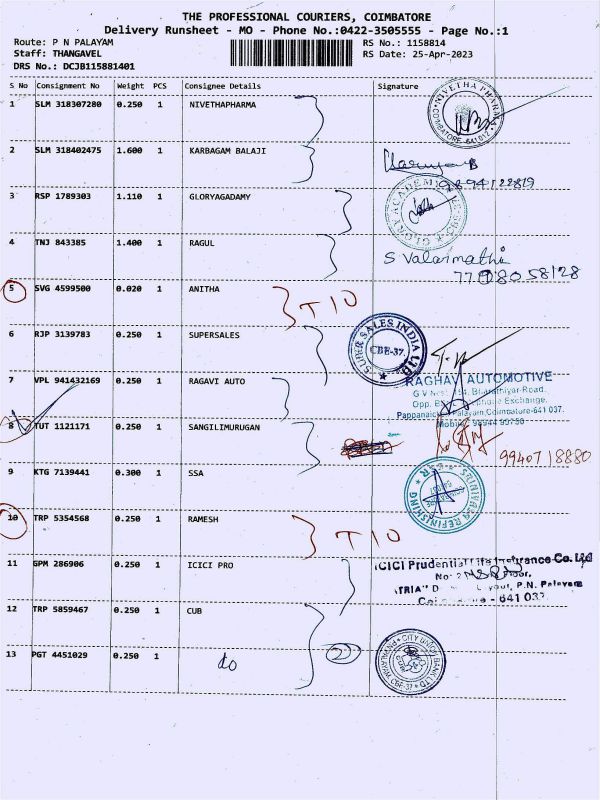 THE PROFESSIONAL COURIERS, COIMBATORE
Delivery Runsheet - MO - Phone No.:0422-3505555 - Page No.:1
Route: P N PALAYAM RS No.: 1158814
Staff: THANGAVEL RS Date: 25-Apr-2023
DRS No.: DCJB115881401
S No Consignment No Weight PCS Consignee Details Signature
1 SLM 318307280 0.250 1 NIVETHAPHARMA NIVETHA PHARMA COIMBATORE-641012
2 SLM 318402475 1.600 1 KARBAGAM BALAJI
3 RSP 1789303 1.110 1 GLORYAGADAMY
4 TNJ 843385 1.400 1 RAGUL S Valarmathi
5 SVG 4599500 0.020 1 ANITHA T10
6 RJP 3139783 0.250 1 SUPERSALES SUPER SALES INDIA LTD CBE-37
7 VPL 941432169 0.250 1 RAGAVI AUTO RAGHAV AUTOMOTIVE
Coimbatore-641 037.
8 TUT 1121171 0.250 1 SANGILIMURUGAN 9940718880
9 KTG 7139441 0.300 1 SSA
10 TRP 5354568 0.250 1 RAMESH T10
11 GPM 286906 0.250 1 ICICI PRO ICICI Prudential Life Insurance Co. Ltd
P.N. Palayam
641 037
12 TRP 5859467 0.250 1 CUB
13 PGT 4451029 0.250 1 do 2 CITY UNION BANK LTD CBE-37